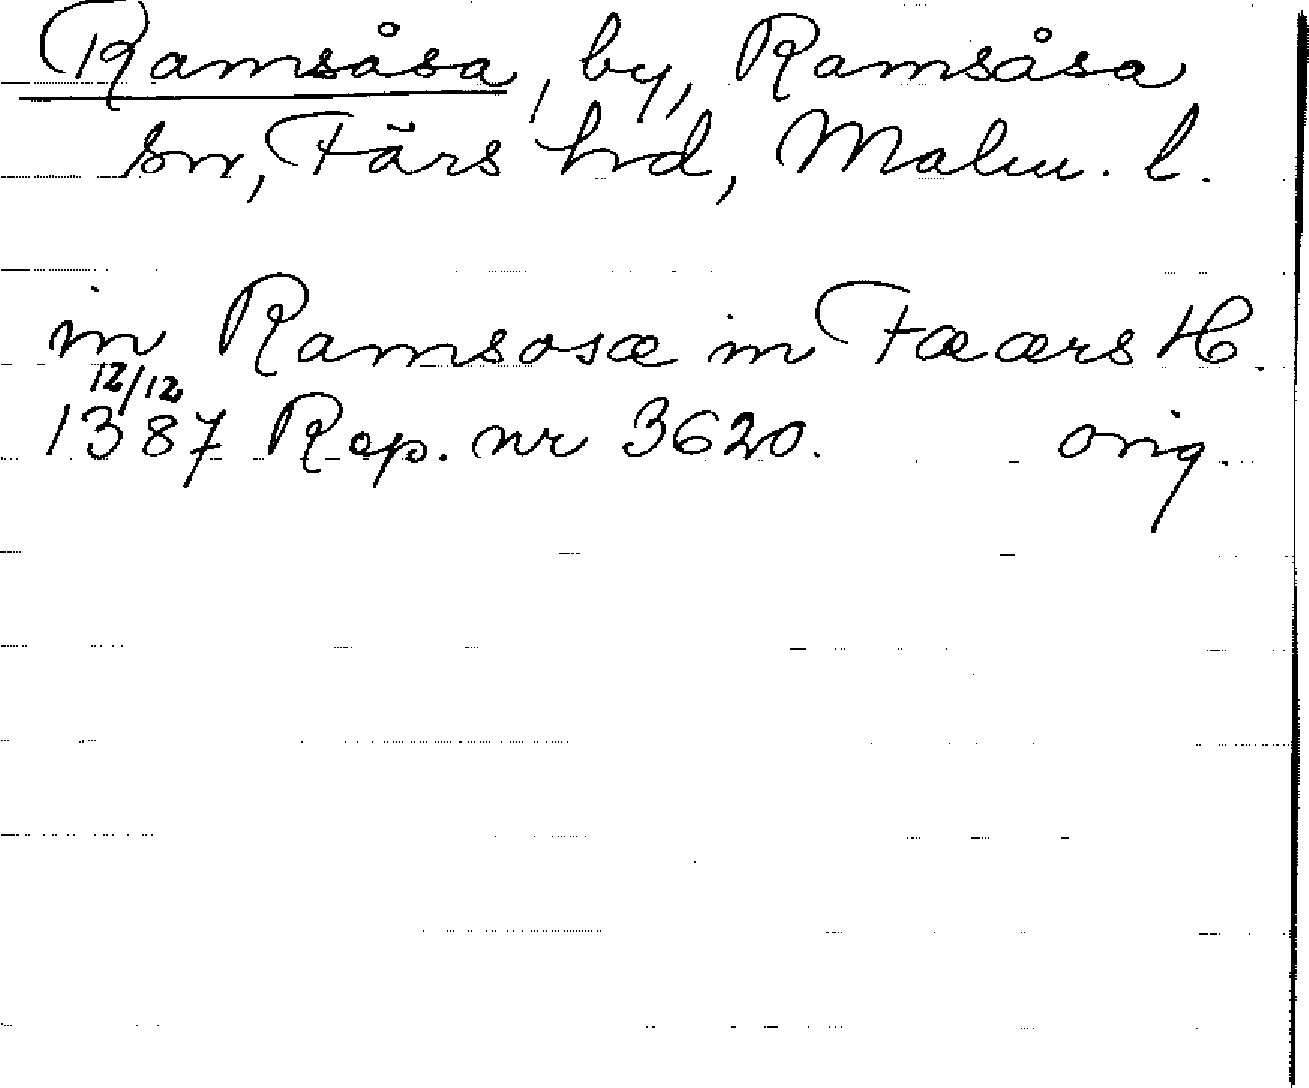 Ramsåsa, by, Ramsåsa
sn, Färs hd, Malm. l.
in Ramsosæ in Fæærs H.
12/12
1387 Rep. nr 3620. orig.